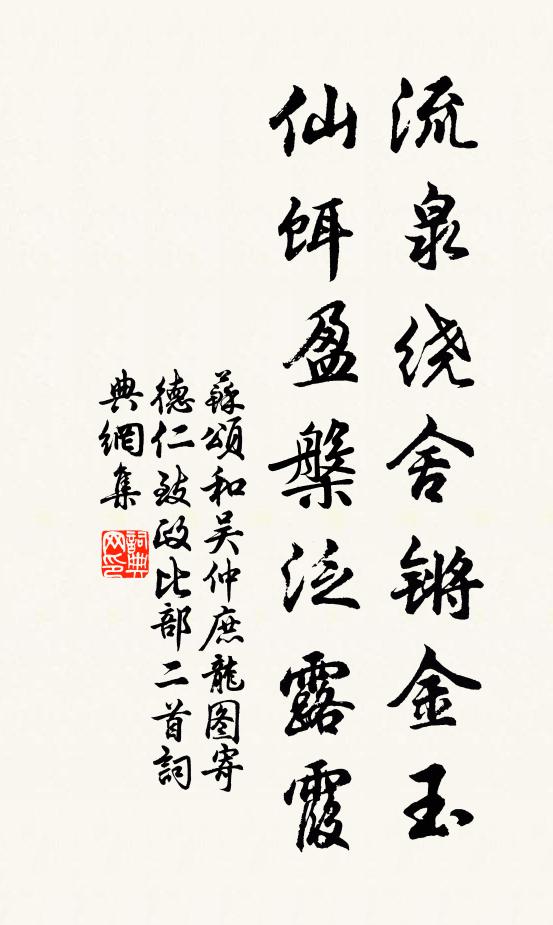 流泉绕舍锵金玉
仙饵盈槃泛露霞
蘇頌和吴仲庶龍图寄
德仁致政比部二首詞
典網集
詞典
网印